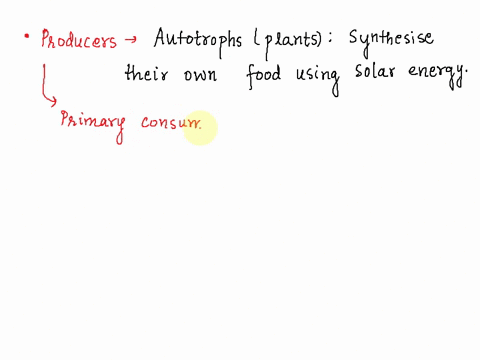 • Producers → Autotrophs (plants): Synthesise
their own food using solar energy.
Primary consum